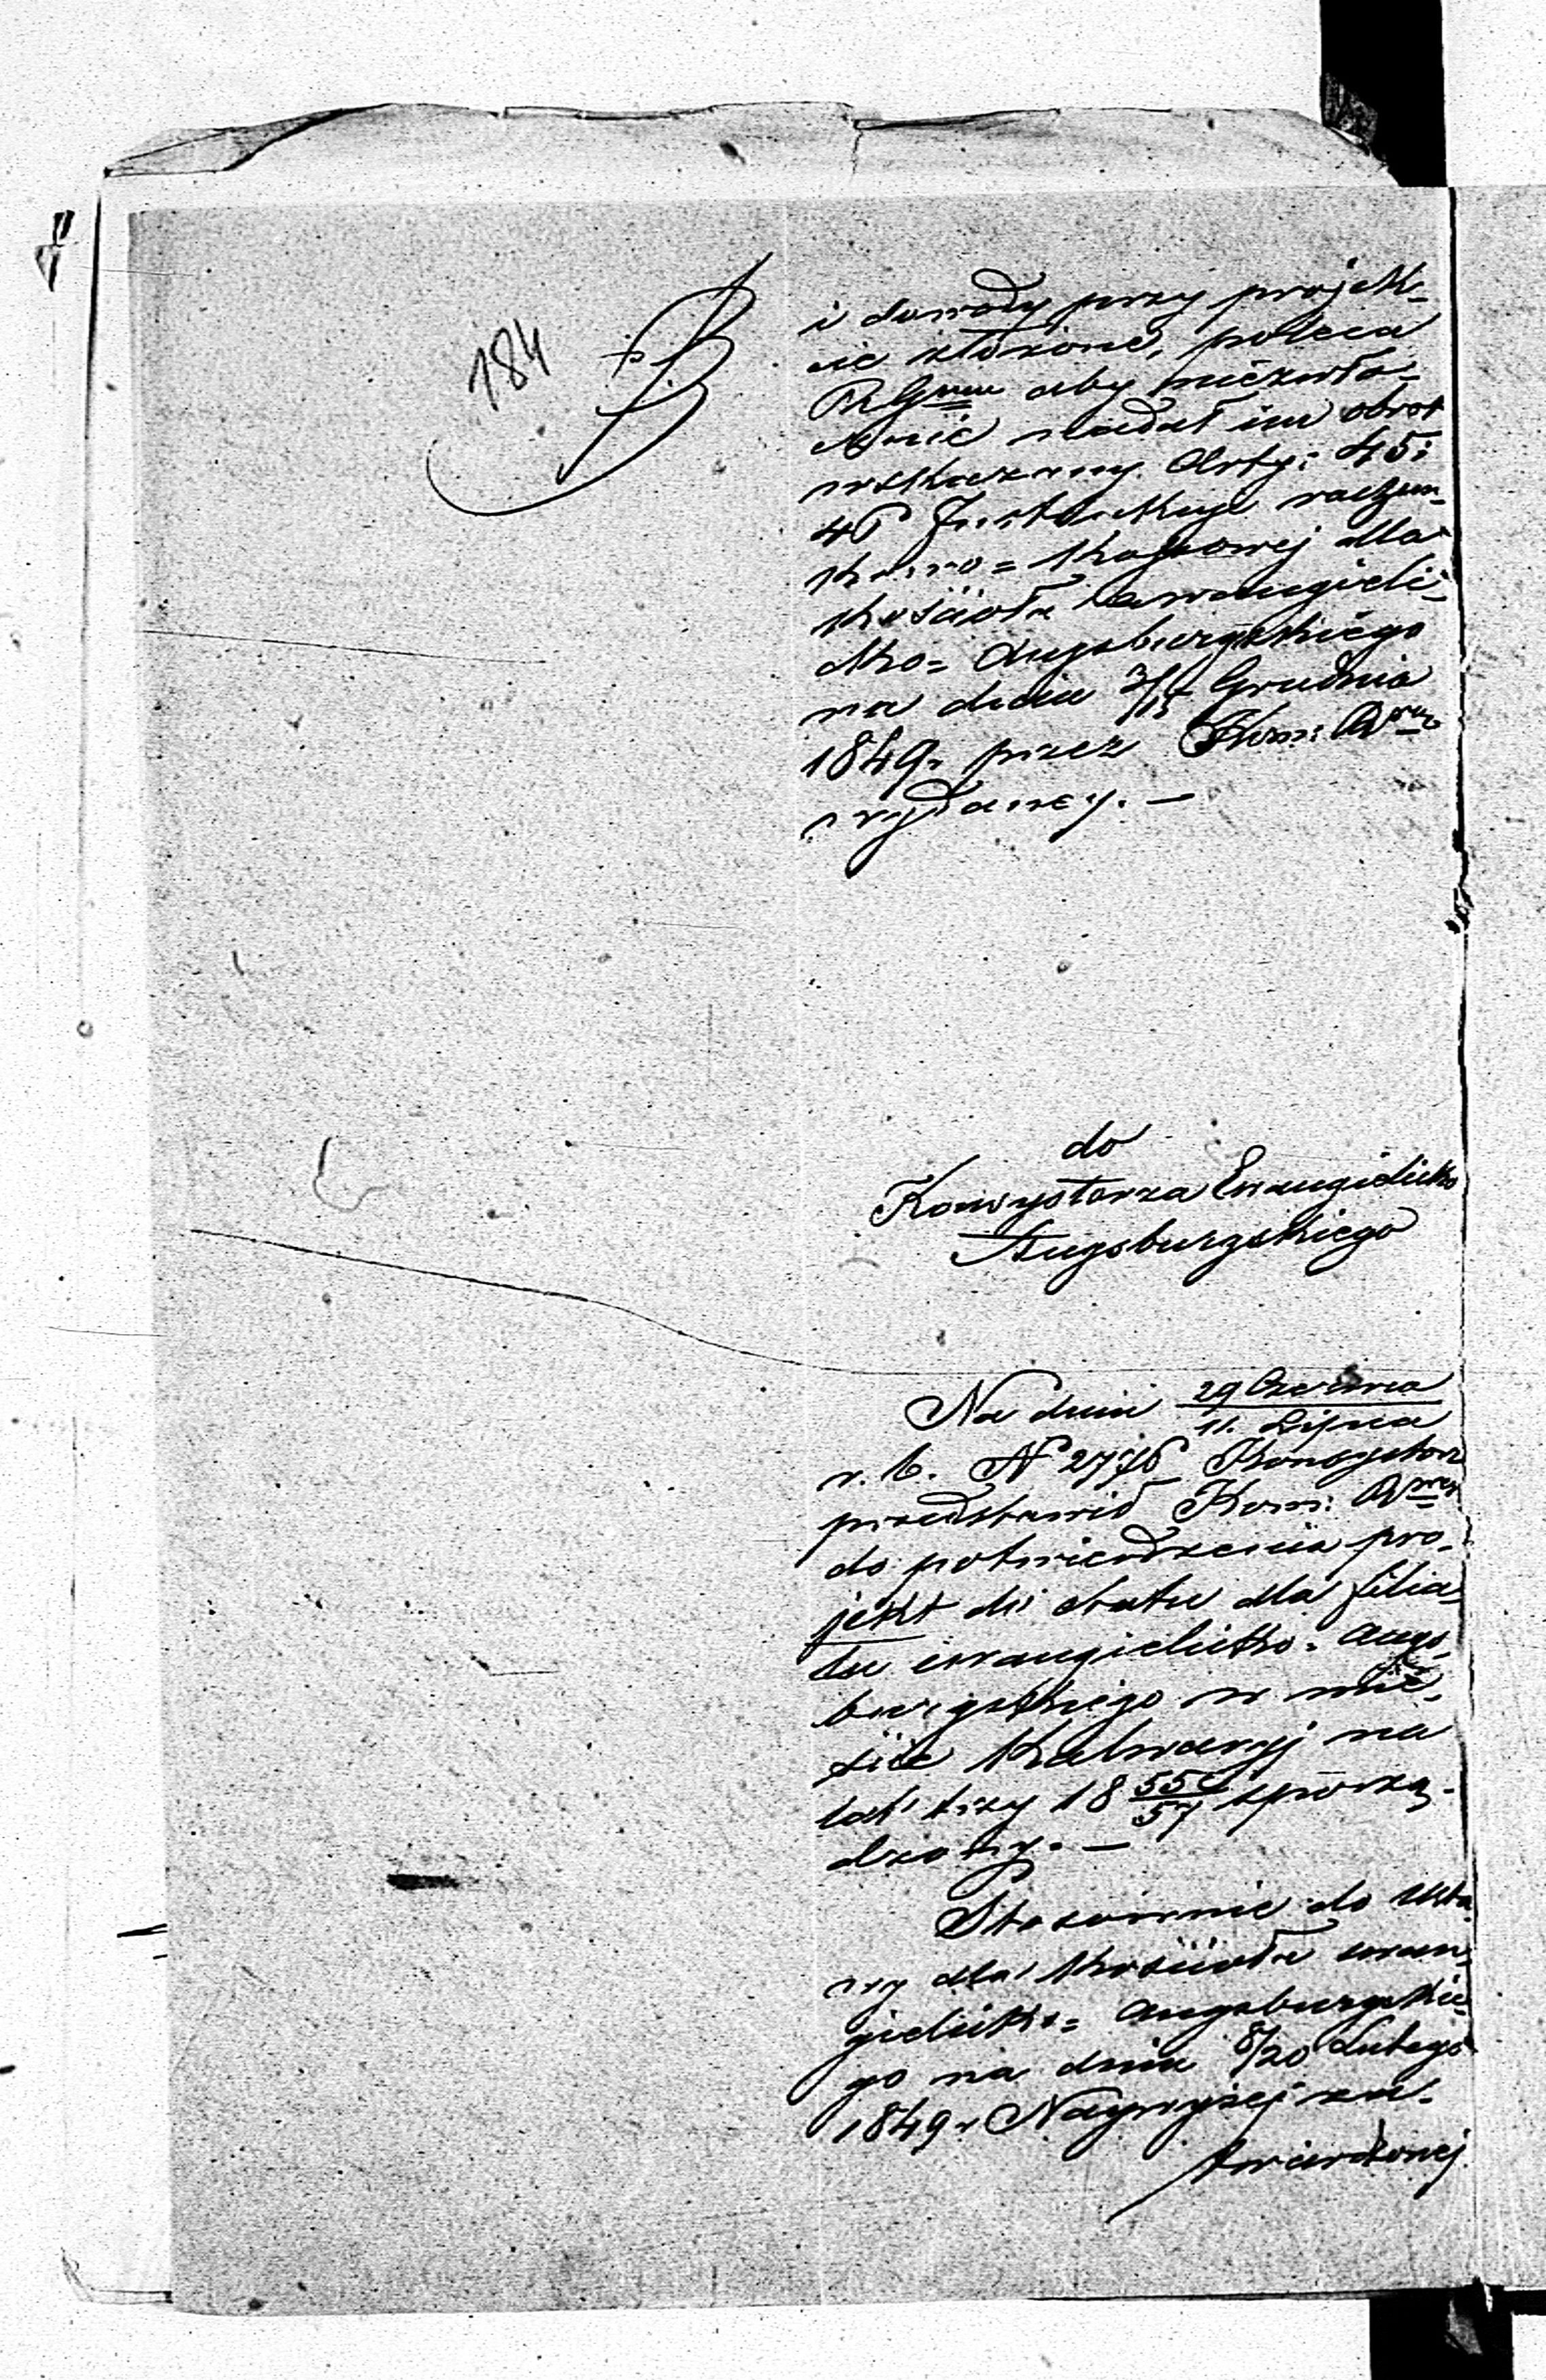 184
i dowody przy projek-
cie złożone, poleca
RGmu aby niezwło-
cznie nadał im obrot
wskazany Arty: 45 i
46 Instrukcyi rachun-
kowo = Kassowej dla
Kościoła Ewangieli-
cko = Augsburgskiego
na dniu 3/15 Grudnia
1849 r. przez Kom: Rną
wydaney. —
do
Konsystorza Ewangielicko
Augsburgskiego
Na dniu 29 Czerwca
11. Lipca
r. b. N 2776 Konsystorz
przedstawił Kom: Rney
do potwierdzenia pro-
jekt do etatu dla filia-
łu ewangielicko = augs-
burgskiego w mie-
ście Kalwaryj na
lat trzy 18 55/57 sporzą-
dzony. —
Stosownie do Usta
wy dla Kościoła ewan-
gielicko = augsburgskie
go na dniu 8/20 Lutego
1849 r Naywyżej za-
twierdzonej